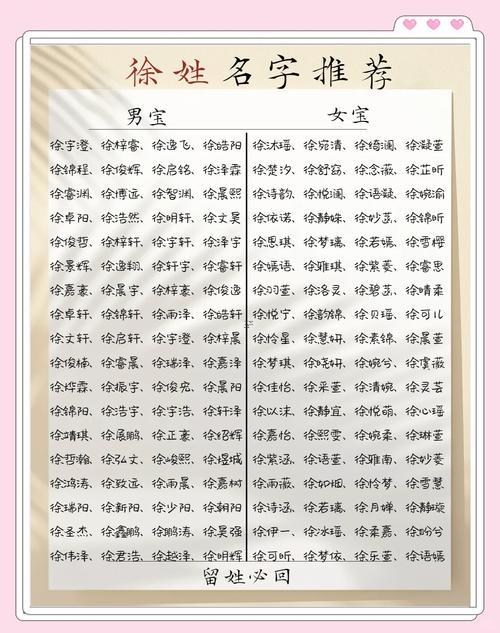 徐姓名字推荐
男宝
女宝
徐宇澄、徐梓睿、徐逸飞、徐皓阳
徐锦程、徐俊辉、徐启铭、徐泽霖
徐睿渊、徐博远、徐智渊、徐晨熙
徐卓阳、徐浩然、徐明轩、徐文昊
徐俊哲、徐梓轩、徐宇轩、徐泽宇
徐景辉、徐逸翔、徐轩宇、徐睿轩
徐嘉豪、徐晨宇、徐梓豪、徐俊逸
徐卓轩、徐锦轩、徐雨泽、徐皓轩
徐文轩、徐启轩、徐宇澄、徐梓晨
徐俊楠、徐睿晨、徐瑞泽、徐嘉泽
徐烨霖、徐振宇、徐俊宪、徐晨阳
徐锦阳、徐浩宇、徐宇浩、徐轩泽
徐靖琪、徐展鹏、徐正豪、徐绍辉
徐哲瀚、徐弘文、徐峻熙、徐煜城
徐鸿涛、徐致远、徐雨晨、徐嘉树
徐瑞阳、徐新阳、徐少阳、徐朝阳
徐圣杰、徐鑫鹏、徐鹏涛、徐昊强
徐伟泽、徐君浩、徐越泽、徐明辉
徐沐瑶、徐宛清、徐绮澜、徐凝萱
徐楚汐、徐舒窈、徐念薇、徐芷昕
徐诗韵、徐悦澜、徐语疑、徐婉渝
徐依诺、徐静姝、徐妙菡、徐锦昕
徐思琪、徐梦瑶、徐若嫣、徐雪樱
徐嫣语、徐雅琪、徐紫菱、徐睿思
徐羽萱、徐洛灵、徐碧菡、徐晴柔
徐悦宁、徐韵锦、徐贝瑶、徐可儿
徐怜星、徐慧妍、徐素锦、徐晨萱
徐梦琪、徐晓妍、徐婉兮、徐虞薇
徐佳怡、徐采萱、徐清婉、徐灵芸
徐以沫、徐静宜、徐悦萌、徐心瑶
徐嘉怡、徐熙雯、徐婉柔、徐琳萱
徐紫涵、徐语萱、徐雅南、徐妙菱
徐雨薇、徐如烟、徐怜梦、徐雪慧
徐诗涵、徐若瑶、徐月婵、徐静璇
徐伊一、徐冰瑶、徐柔嘉、徐盼兮
徐可昕、徐梦依、徐乐萱、徐语嫣
留姓必回